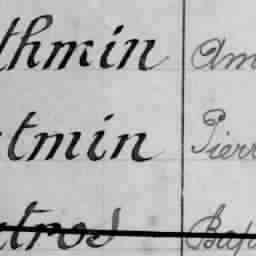 thmin Am
tmin Pierr
tros Bap